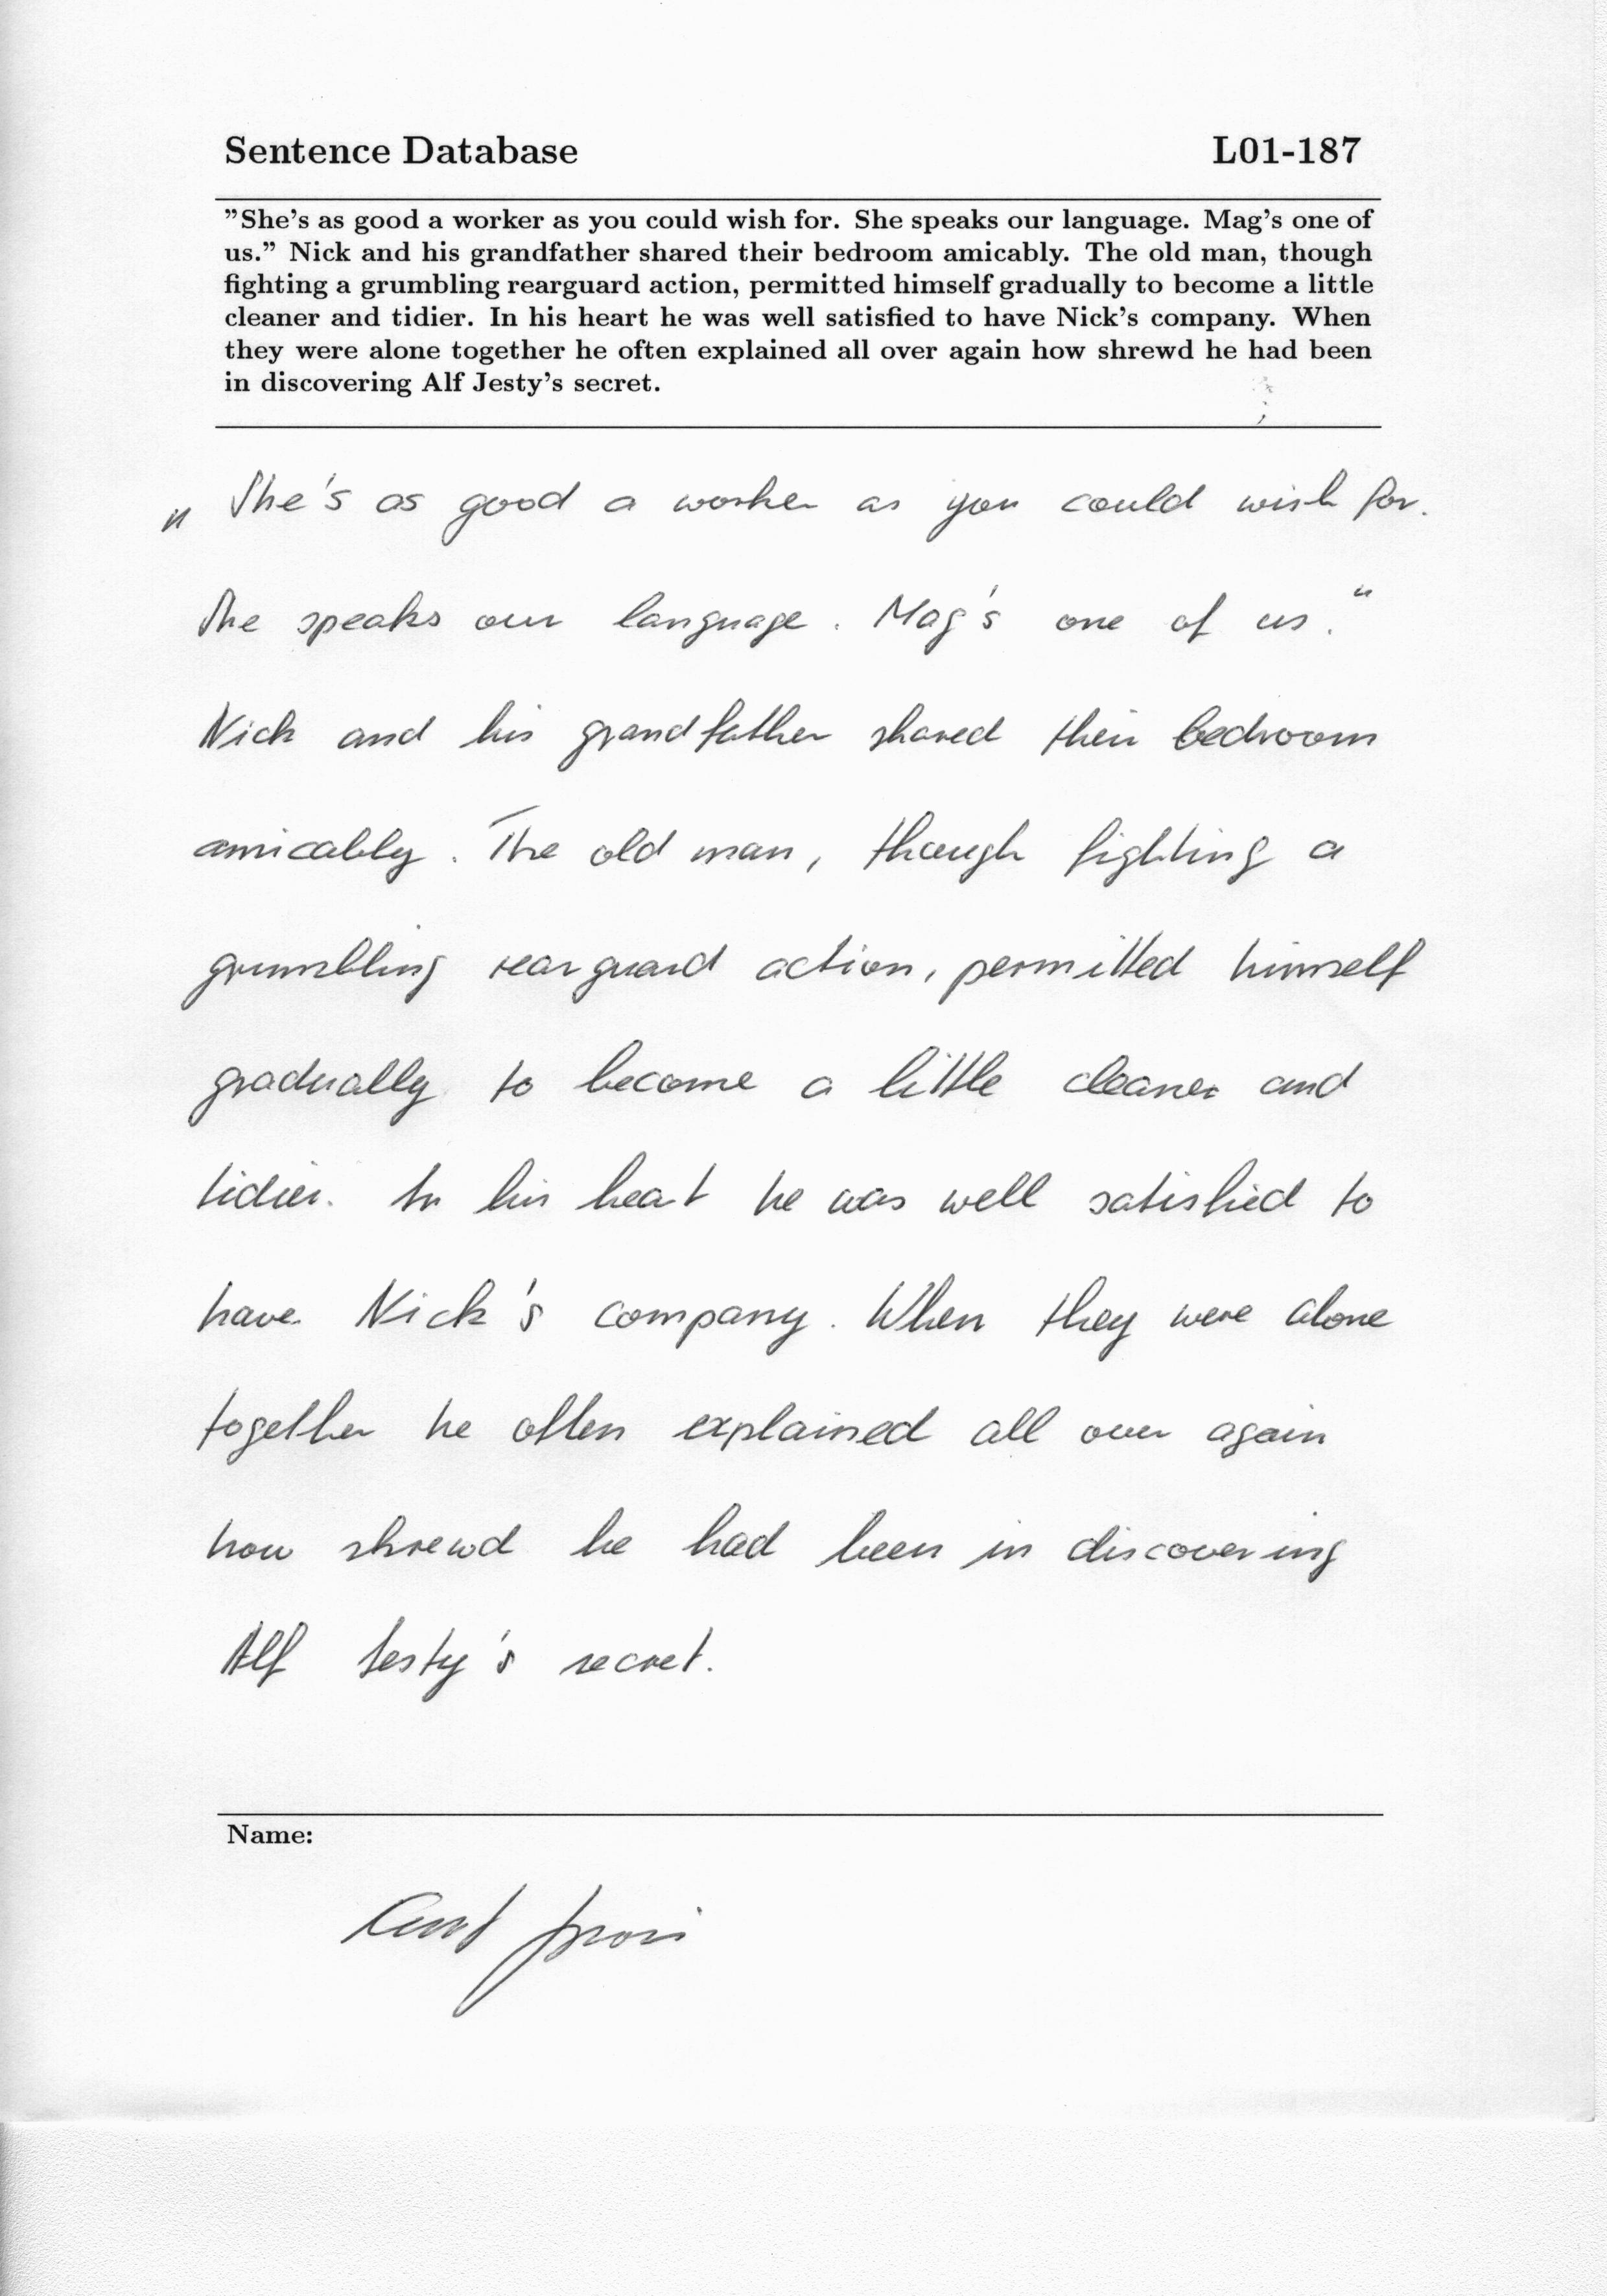 Sentence Database L01-187
"She's as good a worker as you could wish for. She speaks our language. Mag's one of
us." Nick and his grandfather shared their bedroom amicably. The old man, though
fighting a grumbling rearguard action, permitted himself gradually to become a little
cleaner and tidier. In his heart he was well satisfied to have Nick's company. When
they were alone together he often explained all over again how shrewd he had been
in discovering Alf Jesty's secret.
„ She's as good a worker as you could wish for.
She speaks our language. Mag's one of us."
Nick and his grandfather shared their bedroom
amicably. The old man, though fighting a
grumbling rearguard action, permitted himself
gradually to become a little cleaner and
tidier. In his heart he was well satisfied to
have Nick's company. When they were alone
together he often explained all over again
how shrewd he had been in discovering
Alf Jesty's secret.
Name: